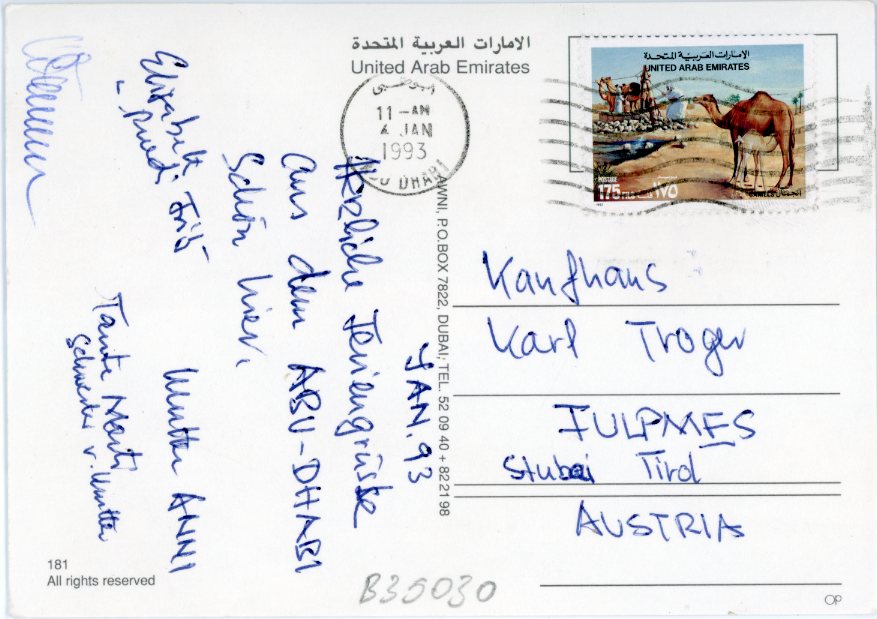 الامارات العربية المتحدة
United Arab Emirates
الامارات العربية المتحدة
UNITED ARAB EMIRATES
POSTAGE
175 FILS ١٧٥
CAMELS
أبوظبي
11-AM
4 JAN
1993
ABU DHABI
AWNI, P.O.BOX 7822, DUBAI, TEL. 52 09 40 + 82 21 98
JAN. 93
Herzliche Feriengrüsse
aus dem ABU-DHABI
Schön hier.
Mutter ANNI
Elisabeth
Fritz
Tante Marti
Schwester v. Mutter
Kaufhaus
Karl Troger
FULPMES
Stubai Tirol
AUSTRIA
181
All rights reserved
B35030
OP